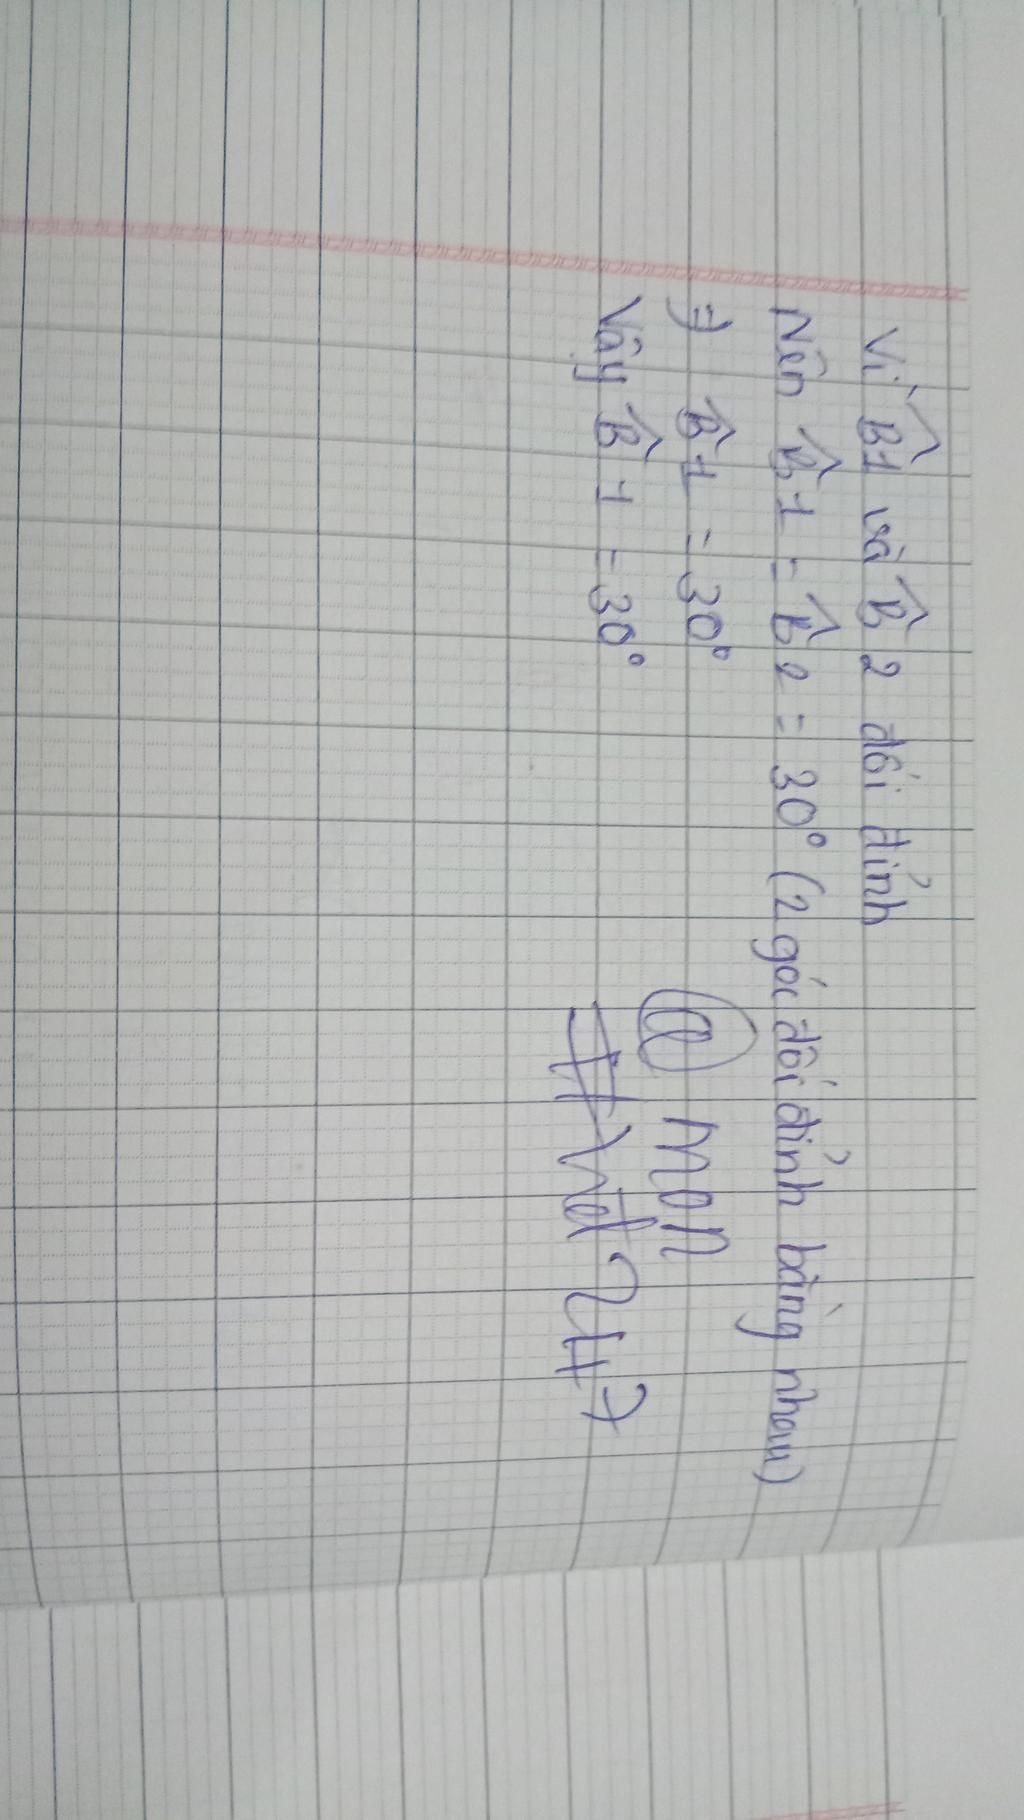 Vì B̂1 và B̂2 đối đỉnh
Nên B̂1 = B̂2 = 30° (2 góc đối đỉnh bằng nhau)
=) B̂1 = 30°
Vậy B̂1 = 30°
@ mon